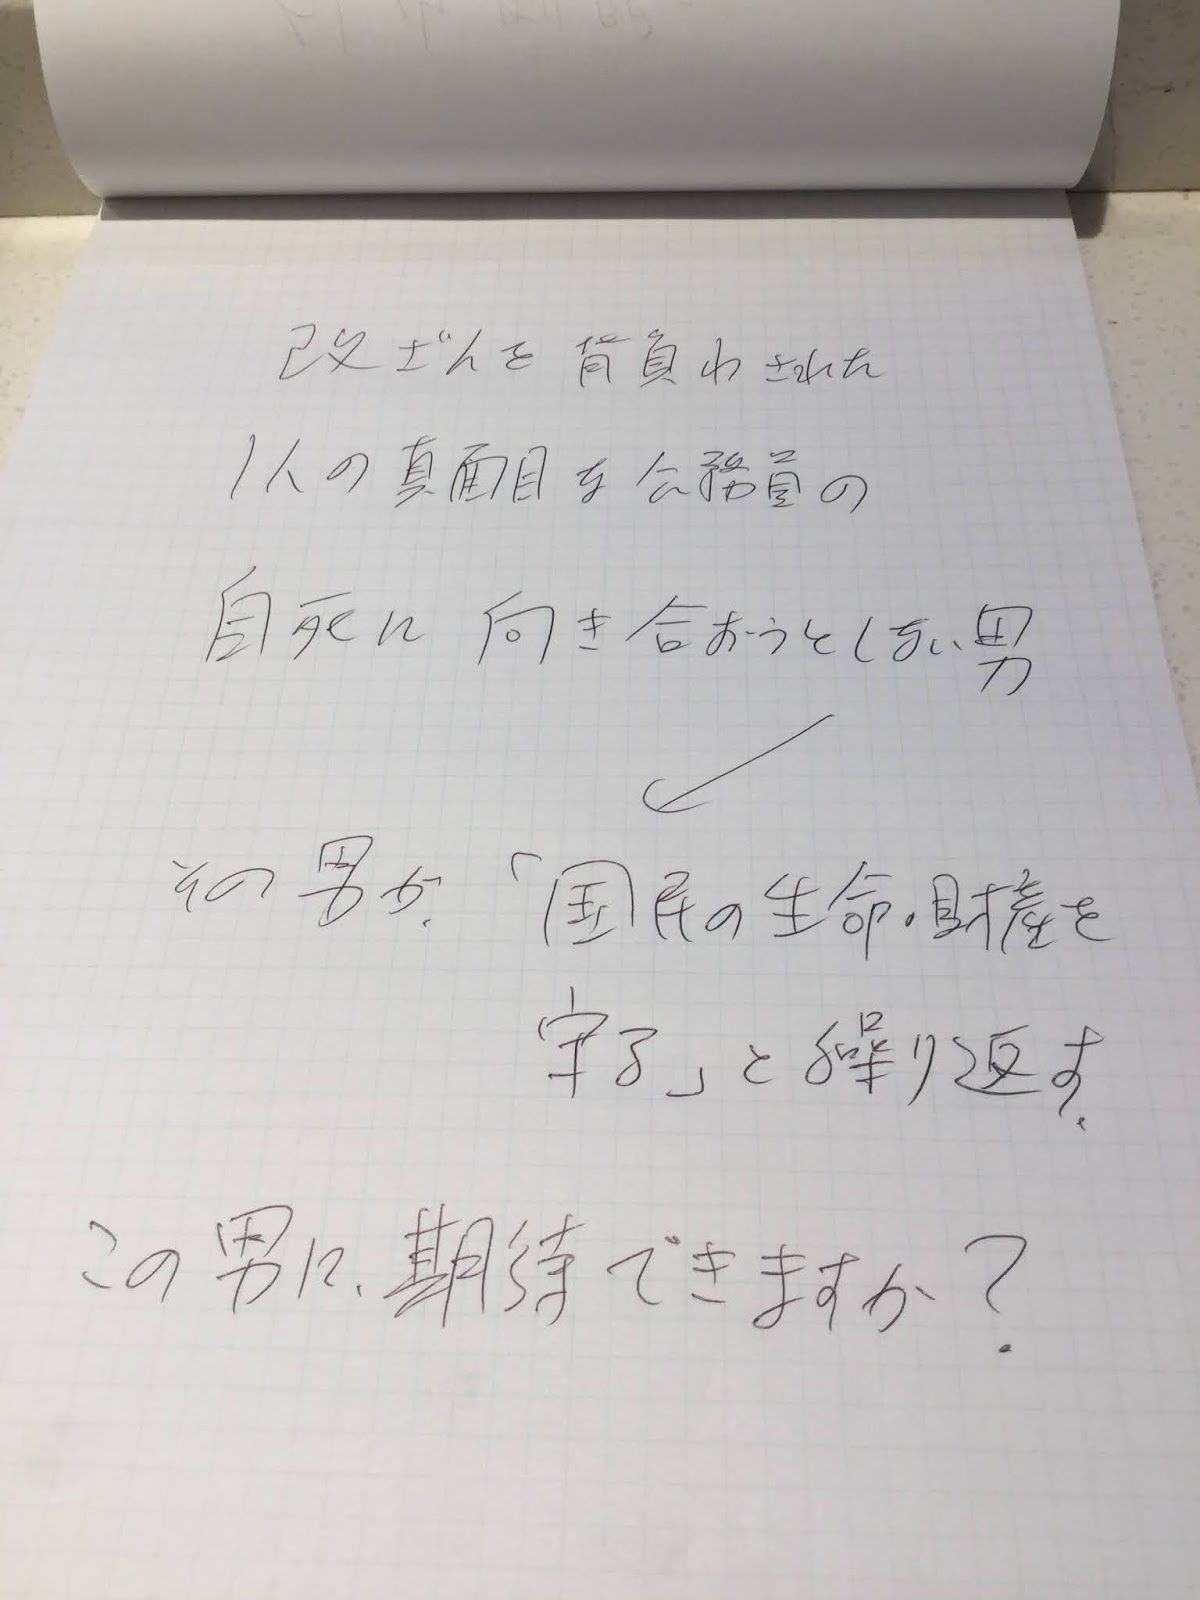 改ざんを背負わされた
1人の真面目な公務員の
自死に向き合おうとしない男
その男が、「国民の生命・財産を
守る」と繰り返す。
この男に、期待できますか?